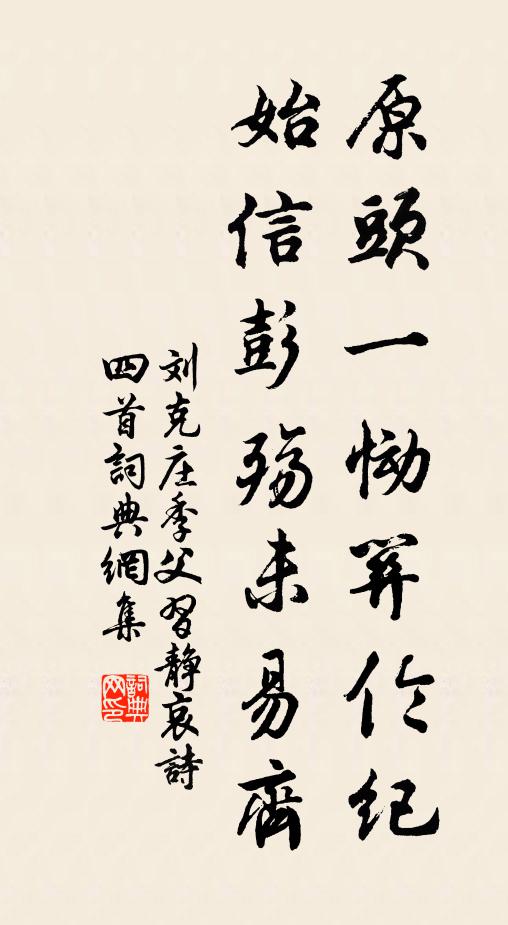 原頭一慟無倫紀
始信彭殤未易齊
刘克庄季父習静哀詩
四首詞典網集
詞典
网印